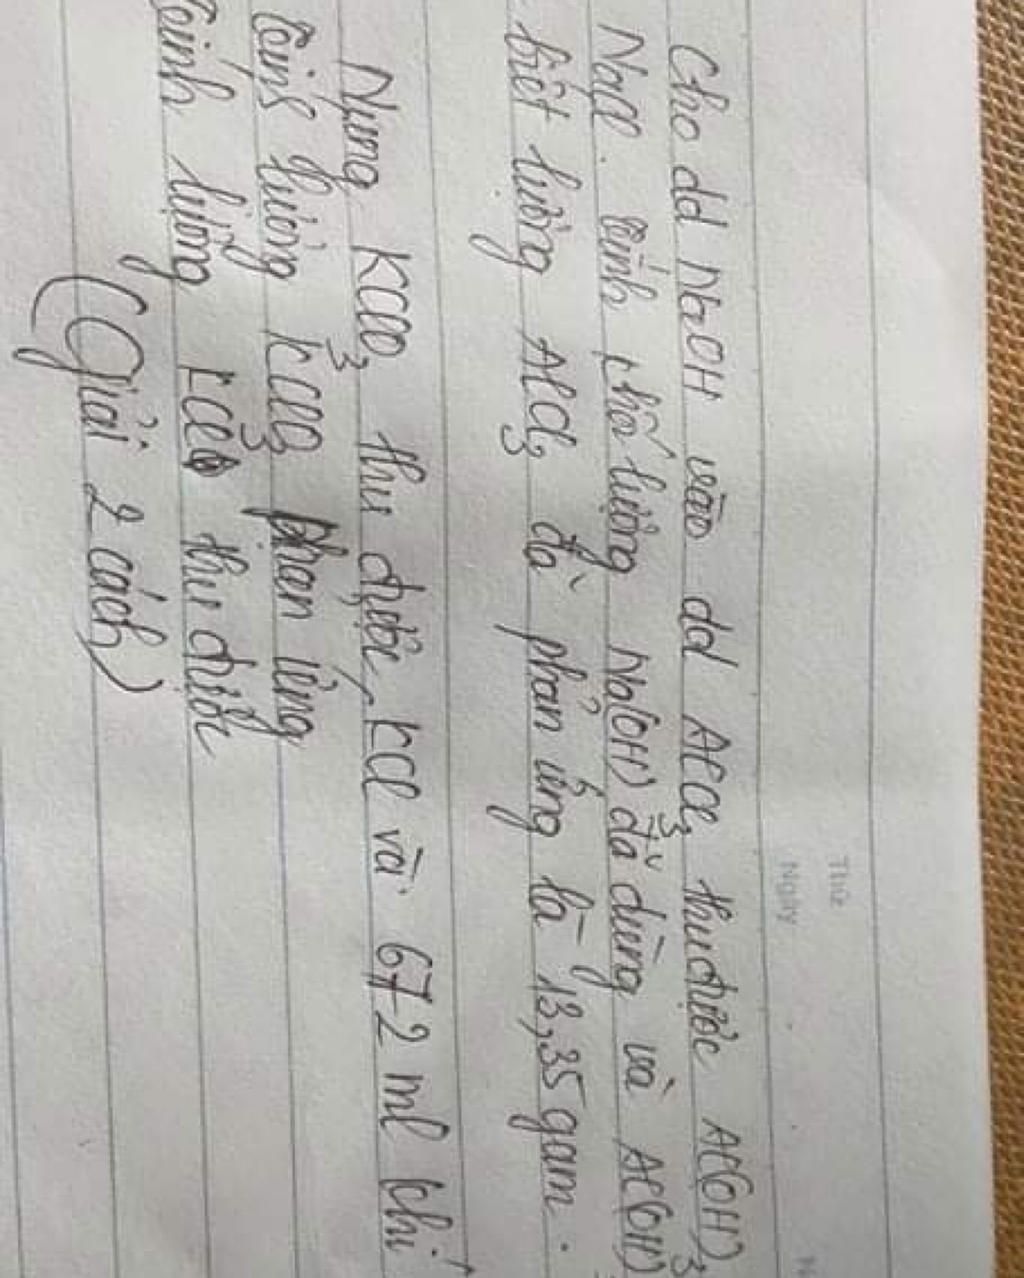 Thứ
Ngày
Cho dd NaOH vào dd AlCl3 thu được Al(OH)3
NaCl. Tính khối lượng Na(OH) đã dùng và Al(OH)3
biết lượng AlCl3 đã phản ứng là 13,35 gam.
Nung KClO3 thu được KCl và 672 ml khí
Tính lượng KClO3 phản ứng
Tính lượng KCl thu được
(Giải 2 cách)